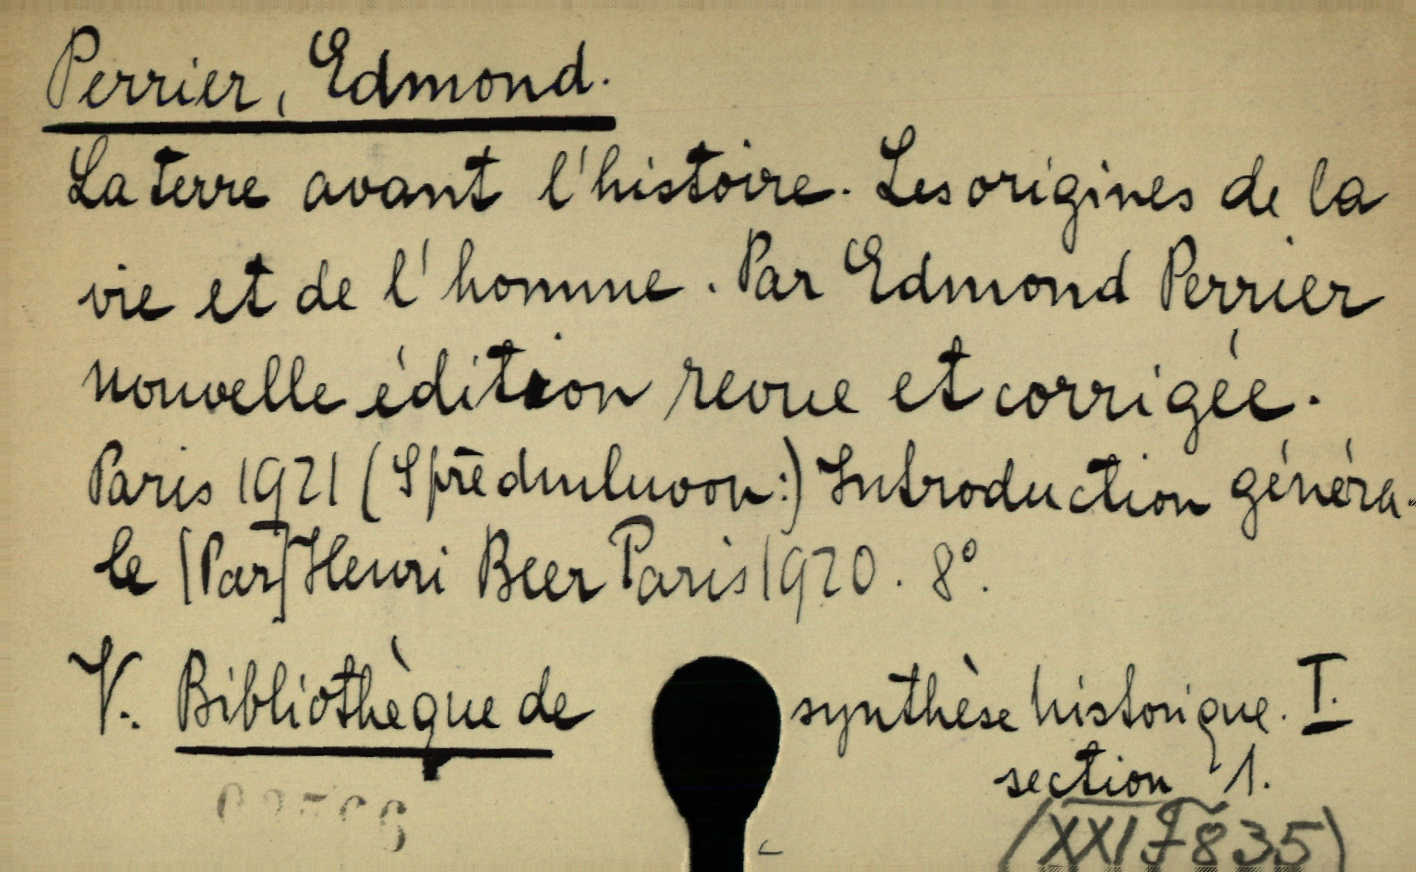 Perrier, Edmond.
La terre avant l'histoire. Les origines de la
vie et de l'homme. Par Edmond Perrier
nouvelle édition revue et corrigée.
Paris 1921 (S předmluvou:) Introduction généra-
le [Par] Henri Beer Paris 1920. 8°.
V. Bibliothèque de synthèse historique. I.
section 1.
(XXI F 835)